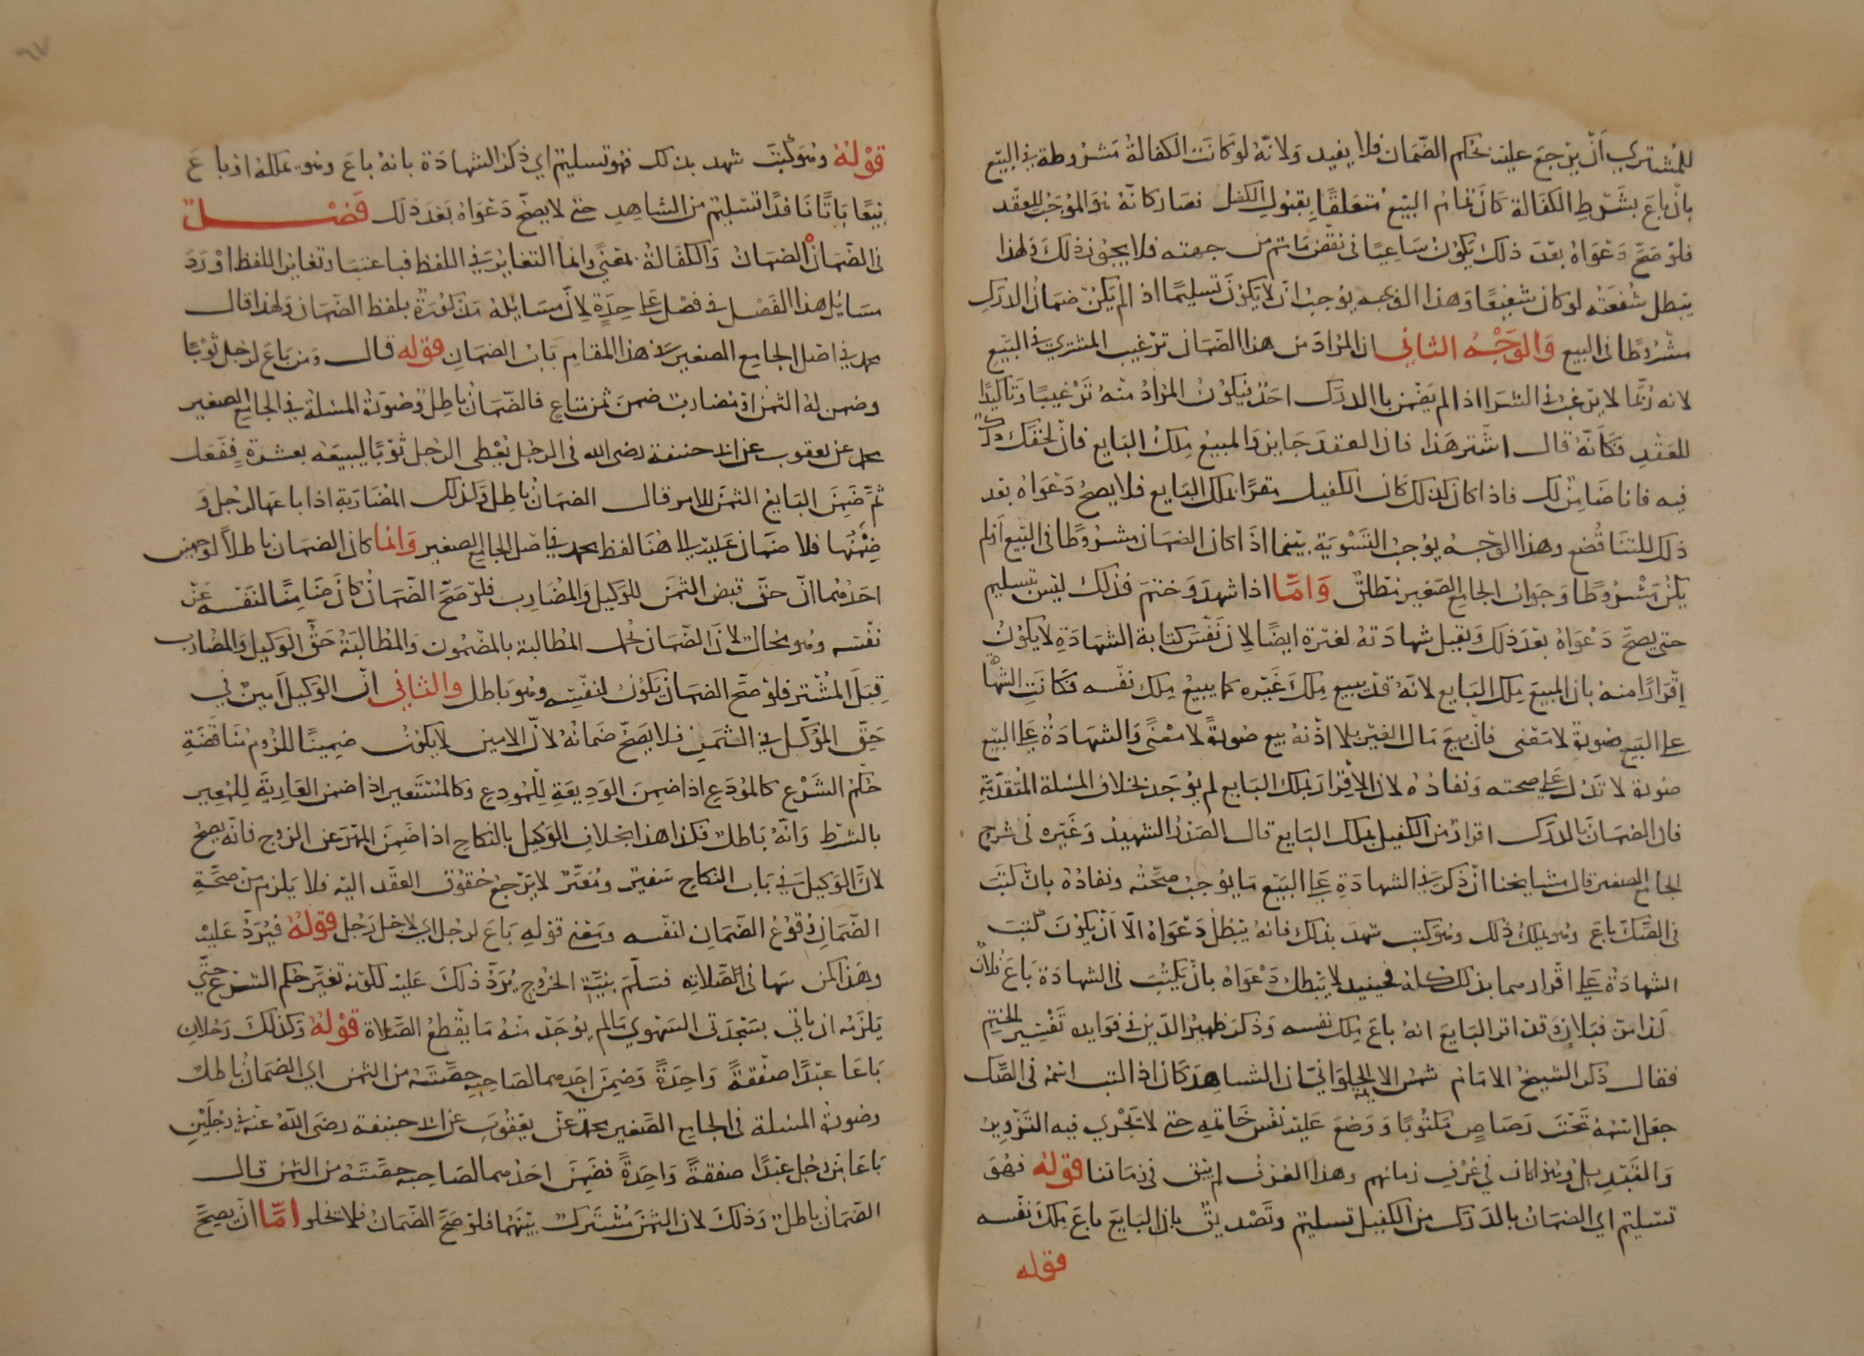 للمشتري أن يرجع عليه بحكم الضمان فلا يفيد ولانه لو كانت الكفالة مشروطة في البيع
بان باع بشرط الكفالة كان تمام البيع متعلقا بقبول الكفيل فصار كانه هو الموجب للعقد
فلو صح دعواه بعد ذلك يكون ساعيا في نقض ما تم من جهته فلا يجوز ذلك ولهذا
يبطل شفعته لو كان شفيعا وهذا الوجه يوجب ان لا يكون تسليما اذا لم يكن ضمان الدرك
مشروطا في البيع والوجه الثاني ان المراد من هذا الضمان ترغيب المشتري في البيع
لانه ربما لا يرغب في الشرا اذا لم يضمن بالدرك احد فيكون المراد منه ترغيبا وتاكيدا
للعقد فكانه قال اشتر هذا فان العقد جايز والمبيع ملك البايع فان لحقك درك
فيه فانا ضامن لك فاذا كان كذلك كان الكفيل مقرا بملك البايع فلا يصح دعواه بعد
ذلك للتناقض وهذا الوجه يوجب التسوية بينما اذا كان الضمان مشروطا في البيع او لم
يكن مشروطا وجواب الجامع الصغير مطلق واما اذا شهد وختم فذلك ليس تسليم
حتى يصح دعواه بعد ذلك ويقبل شهادته لغيره ايضا لان نفس كتابة الشهادة لا يكون
اقرارا منه بان المبيع ملك البايع لانه قد يبيع ملك غيره كما يبيع ملك نفسه فكانت الشها
على البيع صورة لا معنى فان بيع مال الغير بلا اذنه بيع صورة لا معنى والشهادة على البيع
صورة لا تدل على صحته ونفاذه لان الاقرار بملك البايع لم يوجد بخلاف المسلة المتقدمة
فان الضمان بالدرك اقرار من الكفيل بملك البايع قال الصدر الشهيد وغيره في شرح
الجامع الصغير قال مشايخنا ان ذكر في الشهادة على البيع ما يوجب صحته ونفاذه بان كتب
في الصك باع وهو يملك ذلك وهو كتب شهد بذلك فانه يبطل دعواه الا ان يكون كتب
الشهادة على اقرارهما بذلك كله فحينيذ لا يبطل دعواه بان يكتب في الشهادة باع فلان
كذا من فلان وقد اقر البايع انه باع ملك نفسه وذكر ظهير الدين في فوايده تفسير الختم
فقال ذكر الشيخ الامام شمس الايمة الحلواني ان الشاهد كان اذا كتب اسمه في الصك
جعل اسمه تحت رصاص مكتوبا ووضع عليه نقش خاتمه حتى لا يجري فيه التزوير
والتبديل وهذا كان في عرف زمانهم وهذا العرف لم يبق في زماننا قوله فهو
تسليم اي الضمان بالدرك من الكفيل تسليم وتصديق بان البايع باع ملك نفسه
قوله
قوله وهو كتب شهد بذلك فهو تسليم اي ذكر الشهادة بانه باع وهو يملكه او باع
بيعا باتا نافذا تسليم من الشاهد حتى لا يصح دعواه بعد ذلك فصل
في الضمان الضمان والكفالة بمعنى وانما التغاير في اللفظ فباعتبار تغاير اللفظ اورد
مسائل هذا الفصل في فصل على حدة لان مسايله مذكورة بلفظ الضمان ولهذا قال
محمد في اصل الجامع الصغير في هذا المقام باب الضمان قوله قال ومن باع لرجل ثوبا
وضمن له الثمن او مضارب ضمن ثمن متاع فالضمان باطل وصورة المسلة في الجامع الصغير
محمد عن يعقوب عن ابي حنيفة رضي الله في الرجل يعطي الرجل ثوبا ليبيعه بعشرة ففعل
ثم ضمن البايع الثمن للامر قال الضمان باطل وكذلك المضاربة اذا باعها لرجل و
ضمنها فلا ضمان عليه الى هنا لفظ محمد في اصل الجامع الصغير وانما كان الضمان باطلا لوجهين
احدهما ان حق قبض الثمن للوكيل والمضارب فلو صح الضمان كان ضامنا لنفسه عن
نفسه وهو محال لان الضمان تحمل المطالبة بالمضمون والمطالبة حق الوكيل والمضارب
قبل المشتر فلو صح الضمان يكون لنفسه وهو باطل والثاني ان الوكيل امين في
حق الموكل في الثمن فلا يصح ضمانه لان الامين لا يكون ضمينا للزوم مناقضة
حكم الشرع كالمودع اذا ضمن الوديعة للمودع وكالمستعير اذا ضمن العارية للمعير
بالشرط وانه باطل فكذا هذا بخلاف الوكيل بالنكاح اذا ضمن المهر عن الزوج فانه يصح
لان الوكيل في باب النكاح سفير ومعبر لا يرجع حقوق العقد اليه فلا يلزم من صحة
الضمان وقوع الضمان لنفسه ومعنى قوله باع لرجل اي لاجل رجل قوله فيرد عليه
وهذا كمن سها في الصلاة فسلم بنية الخروج يرد ذلك عليه لكونه تغير حكم الشرع حتى
يلزمه ان ياتي بسجدتي السهو ما لم يوجد منه ما يقطع الصلاة قوله وكذلك رجلان
باعا عبدا صفقة واحدة وضمن احدهما لصاحبه حصته من الثمن اي الضمان باطل
وصورة المسلة في الجامع الصغير محمد عن يعقوب عن ابي حنيفة رضي الله عنه في رجلين
باعا من رجل عبدا صفقة واحدة فضمن احدهما لصاحبه حصته من الثمن قال
الضمان باطل وذلك لان الثمن مشترك بينهما فلو صح الضمان فلا يخلو اما ان يصح